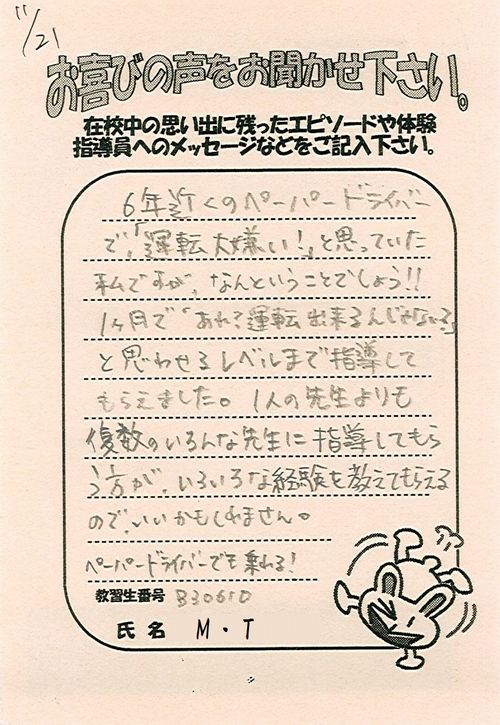 11/21
お喜びの声をお聞かせ下さい。
在校中の思い出に残ったエピソードや体験
指導員へのメッセージなどをご記入下さい。
6年近くのペーパードライバー
で、「運転大嫌い!」と思っていた
私ですが、なんということでしょう!!
1ヶ月で「あれ?運転出来るんじゃない?」
と思わせるレベルまで指導して
もらえました。1人の先生よりも
複数のいろんな先生に指導してもら
う方が、いろいろな経験を教えてもらえる
ので、いいかもしれません。
ペーパードライバーでも乗れる!
教習生番号 B30610
氏名 M・T